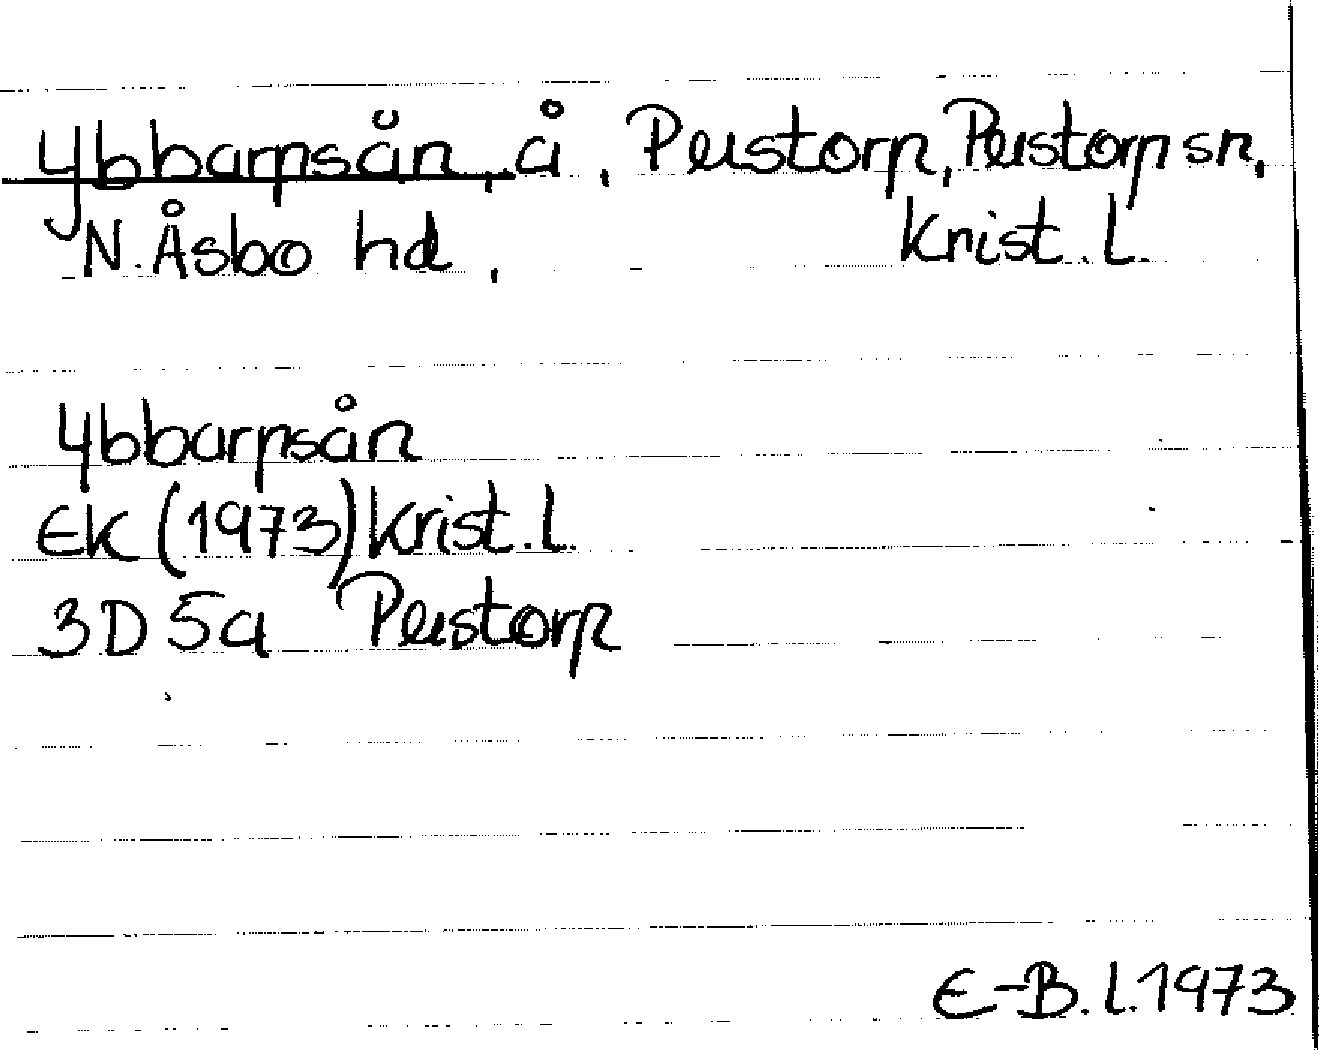 Ybbarpsån, å, Perstorp, Perstorp sn,
N. Åsbo hd, Krist. l.
Ybbarpsån
EK (1973) Krist. l.
3D 5a Perstorp
E-B. l. 1973